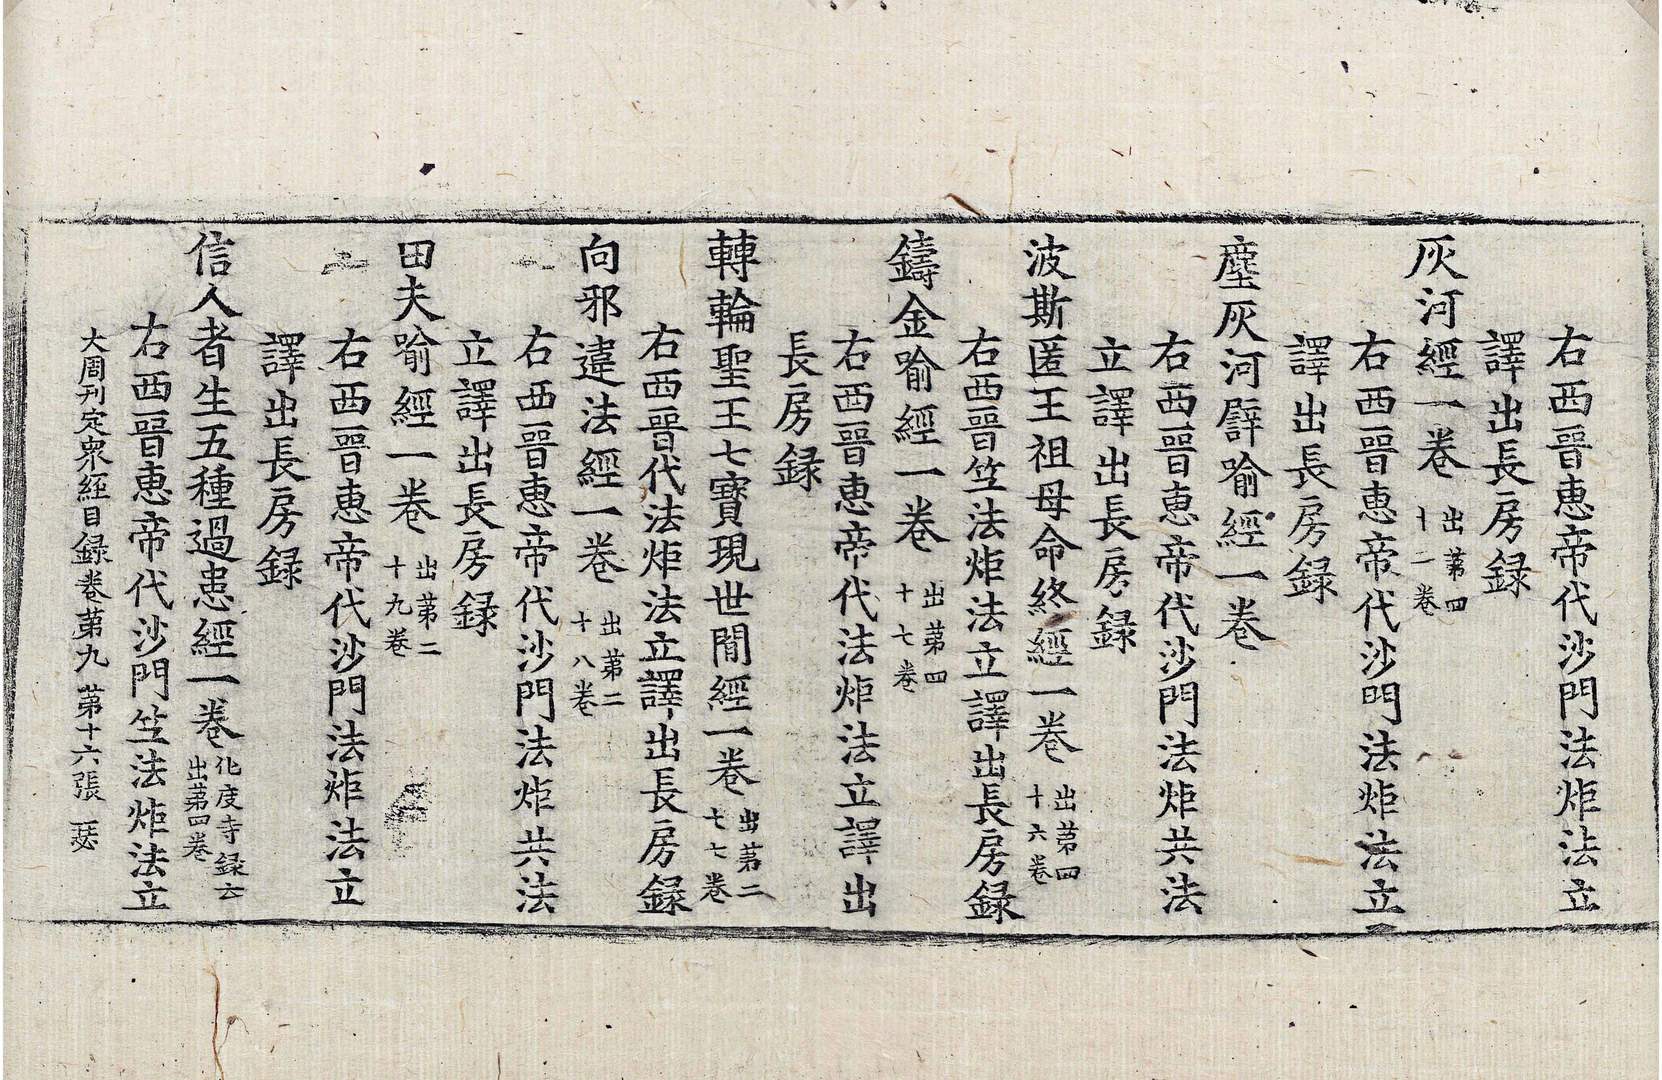 右西晉惠帝代沙門法炬法立
譯出長房録
灰河經一卷 出第四十一卷
右西晉惠帝代沙門法炬法立
譯出長房録
塵灰河譬喻經一卷
右西晉惠帝代沙門法炬共法
立譯出長房録
波斯匿王祖母命終經一卷 出第四十六卷
右西晉竺法炬法立譯出長房録
鑄金喻經一卷 出第四十七卷
右西晉惠帝代法炬法立譯出
長房録
轉輪聖王七寶現世間經一卷 出第二七七卷
右西晉代法炬法立譯出長房録
向邪違法經一卷 出第二十八卷
右西晉惠帝代沙門法炬共法
立譯出長房録
田夫喻經一卷 出第二十九卷
右西晉惠帝代沙門法炬法立
譯出長房録
信人者生五種過患經一卷 化度寺録云出第四卷
右西晉惠帝代沙門竺法炬法立
大周刊定衆經目録卷第九 第十六張 瑟